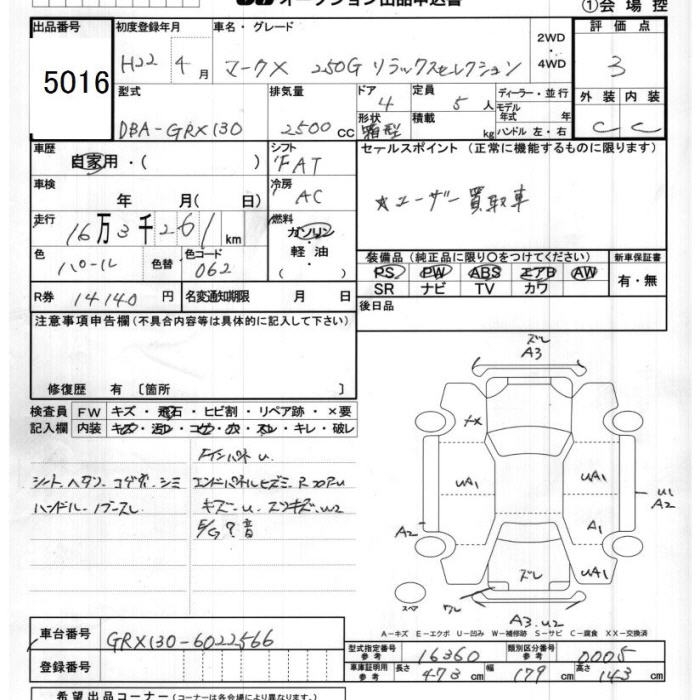 オークション出品申込書
①会場控
出品番号 5016
初度登録年月 H22 4月
車名・グレード マークX 250G リラックスセレクション
2WD・4WD
評価点 3
型式 DBA-GRX130
排気量 2500cc
ドア 4 形状 箱型
定員 5人
積載 kg
ディーラー・並行
モデル年式 年
ハンドル 左・右
外装 C 内装 C
車歴 自家用・( )
シフト FAT
セールスポイント (正常に機能するものに限ります)
車検 年 月( 日)
冷房 AC
★ユーザー買取車
走行 16万3千261km
燃料 ガソリン・軽油・( )
色 パール 色替
色コード 062
装備品(純正品に限り〇をつけてください)
新車保証書
PS PW ABS エアB AW
有・無
SR ナビ TV カワ
R券 14140円
名変通知期限 月 日
後日品
注意事項申告欄(不具合内容等は具体的に記入して下さい)
修復歴 有〔箇所 〕
検査員記入欄
FW キズ・飛石・ヒビ割・リペア跡・×要
内装 キズ・汚レ・コゲ・穴・スレ・キレ・破レ
シート ヘタリ コゲ穴 シミ
ハンドル ノブ スレ
インパネ U.
エンドパネルヒズミ
キズ U
E/G 異音
ズレ
A3
UA1
UA1
U1
A2
A2
A1
ズレ
UA1
スペア
ワレ
A3.U2
A-キズ E-エクボ U-凹み W-補修跡 S-サビ C-腐食 XX-交換済
車台番号 GRX130-6022566
登録番号
型式指定番号 参考 16360
類別区分番号 参考 0005
車庫証明用 参考 長さ 473cm 幅 179cm 高さ 143cm
希望出品コーナー(コーナーは各会場により異なります)